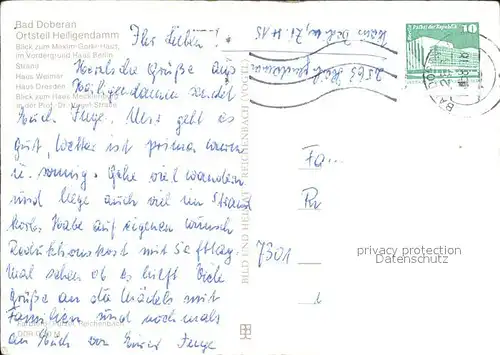 Bad Doberan
Ortsteil Heiligendamm
Blick zum Maxim-Gorki-Haus,
im Vordergrund Haus Berlin
Strand
Haus Weimar
Haus Dresden
Blick zum Haus Mecklenburg
Ihr Lieben!
Herzliche Grüße aus
Heiligendamm sendet
Euch Inge. Uns geht es
gut, Wetter ist prima warm
u. sonnig. Gehe viel wandern
und liege auch viel im Strand
korb. Habe auf eigenen Wunsch
Reduktionskost mit Safttag.
Mal sehen ob es hilft. Viele
Grüße an die Mädels mit
Familien und nochmals
an Euch von Eurer Inge
BILD UND HEIMAT REICHENBACH (VOGTL)
2565 Heiligendamm
Palast der Republik
10
DDR
BAD DO
Fa...
7301
privacy protection
Datenschutz